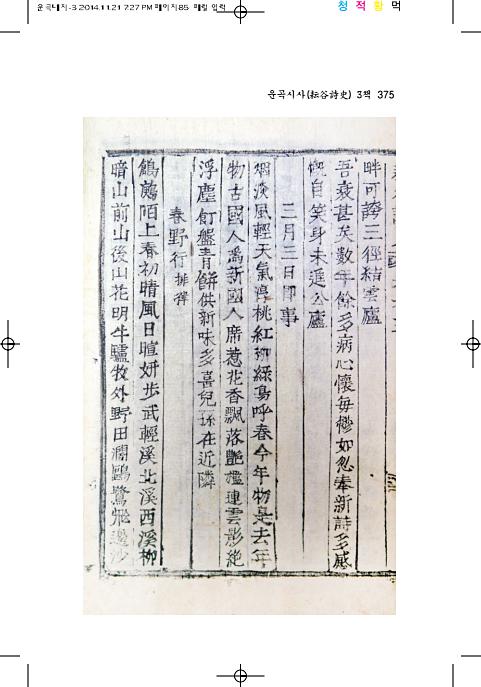 2014.11.21 7:27 PM 페이지85
청 적 황 먹
운곡시사(耘谷詩史) 3책 375
畔可誇三徑結雲廬
吾衰甚矣數年餘多病心懷每欝如忽奉新詩多感
慨自笑身未進公廬
三月三日即事
烟淡風輕天氣淳桃紅柳綠鳥呼春今年物是去年
物古國人爲新國人席惹花香飄落艶檻連雲影絶
浮塵飣盤靑餅供新味多喜兒孫在近隣
春野行
陌上春初晴風日暄妍步武輕溪北溪西溪柳
暗山前山後山花明牛驢牧外野田濶鷗鷺飛邊沙